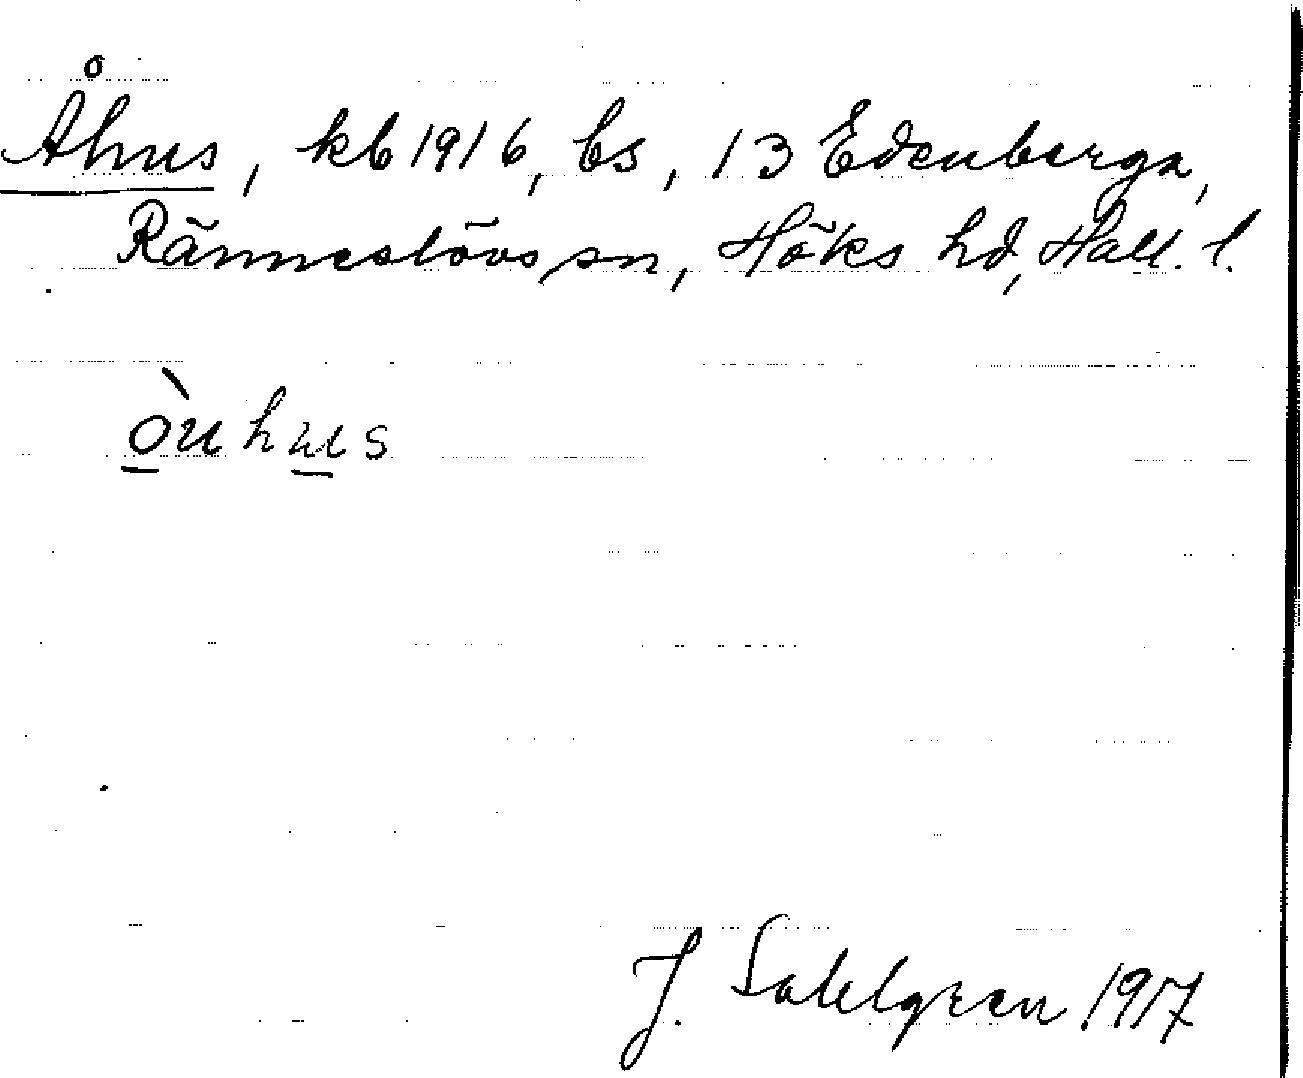 Åhus, kb 1916, bs, 13 Edenberga,
Ränneslövs sn, Höks hd, Hall. l.
òuhus
J. Sahlgren 1917